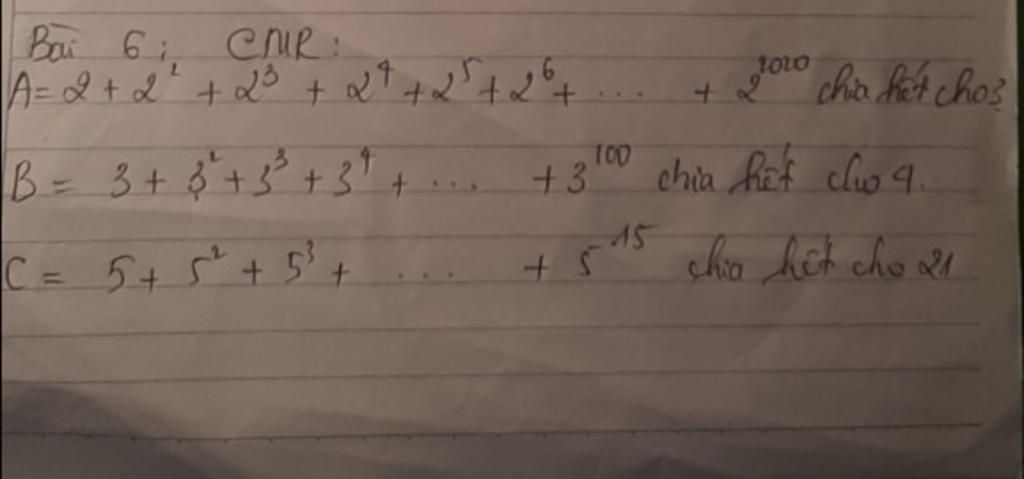 Bài 6: CMR:
A = 2 + 2² + 2³ + 2⁴ + 2⁵ + 2⁶ + .... + 2²⁰²⁰ chia hết cho 3
B = 3 + 3² + 3³ + 3⁴ + ... + 3¹⁰⁰ chia hết cho 4.
C = 5 + 5² + 5³ + .... + 5¹⁵ chia hết cho 21